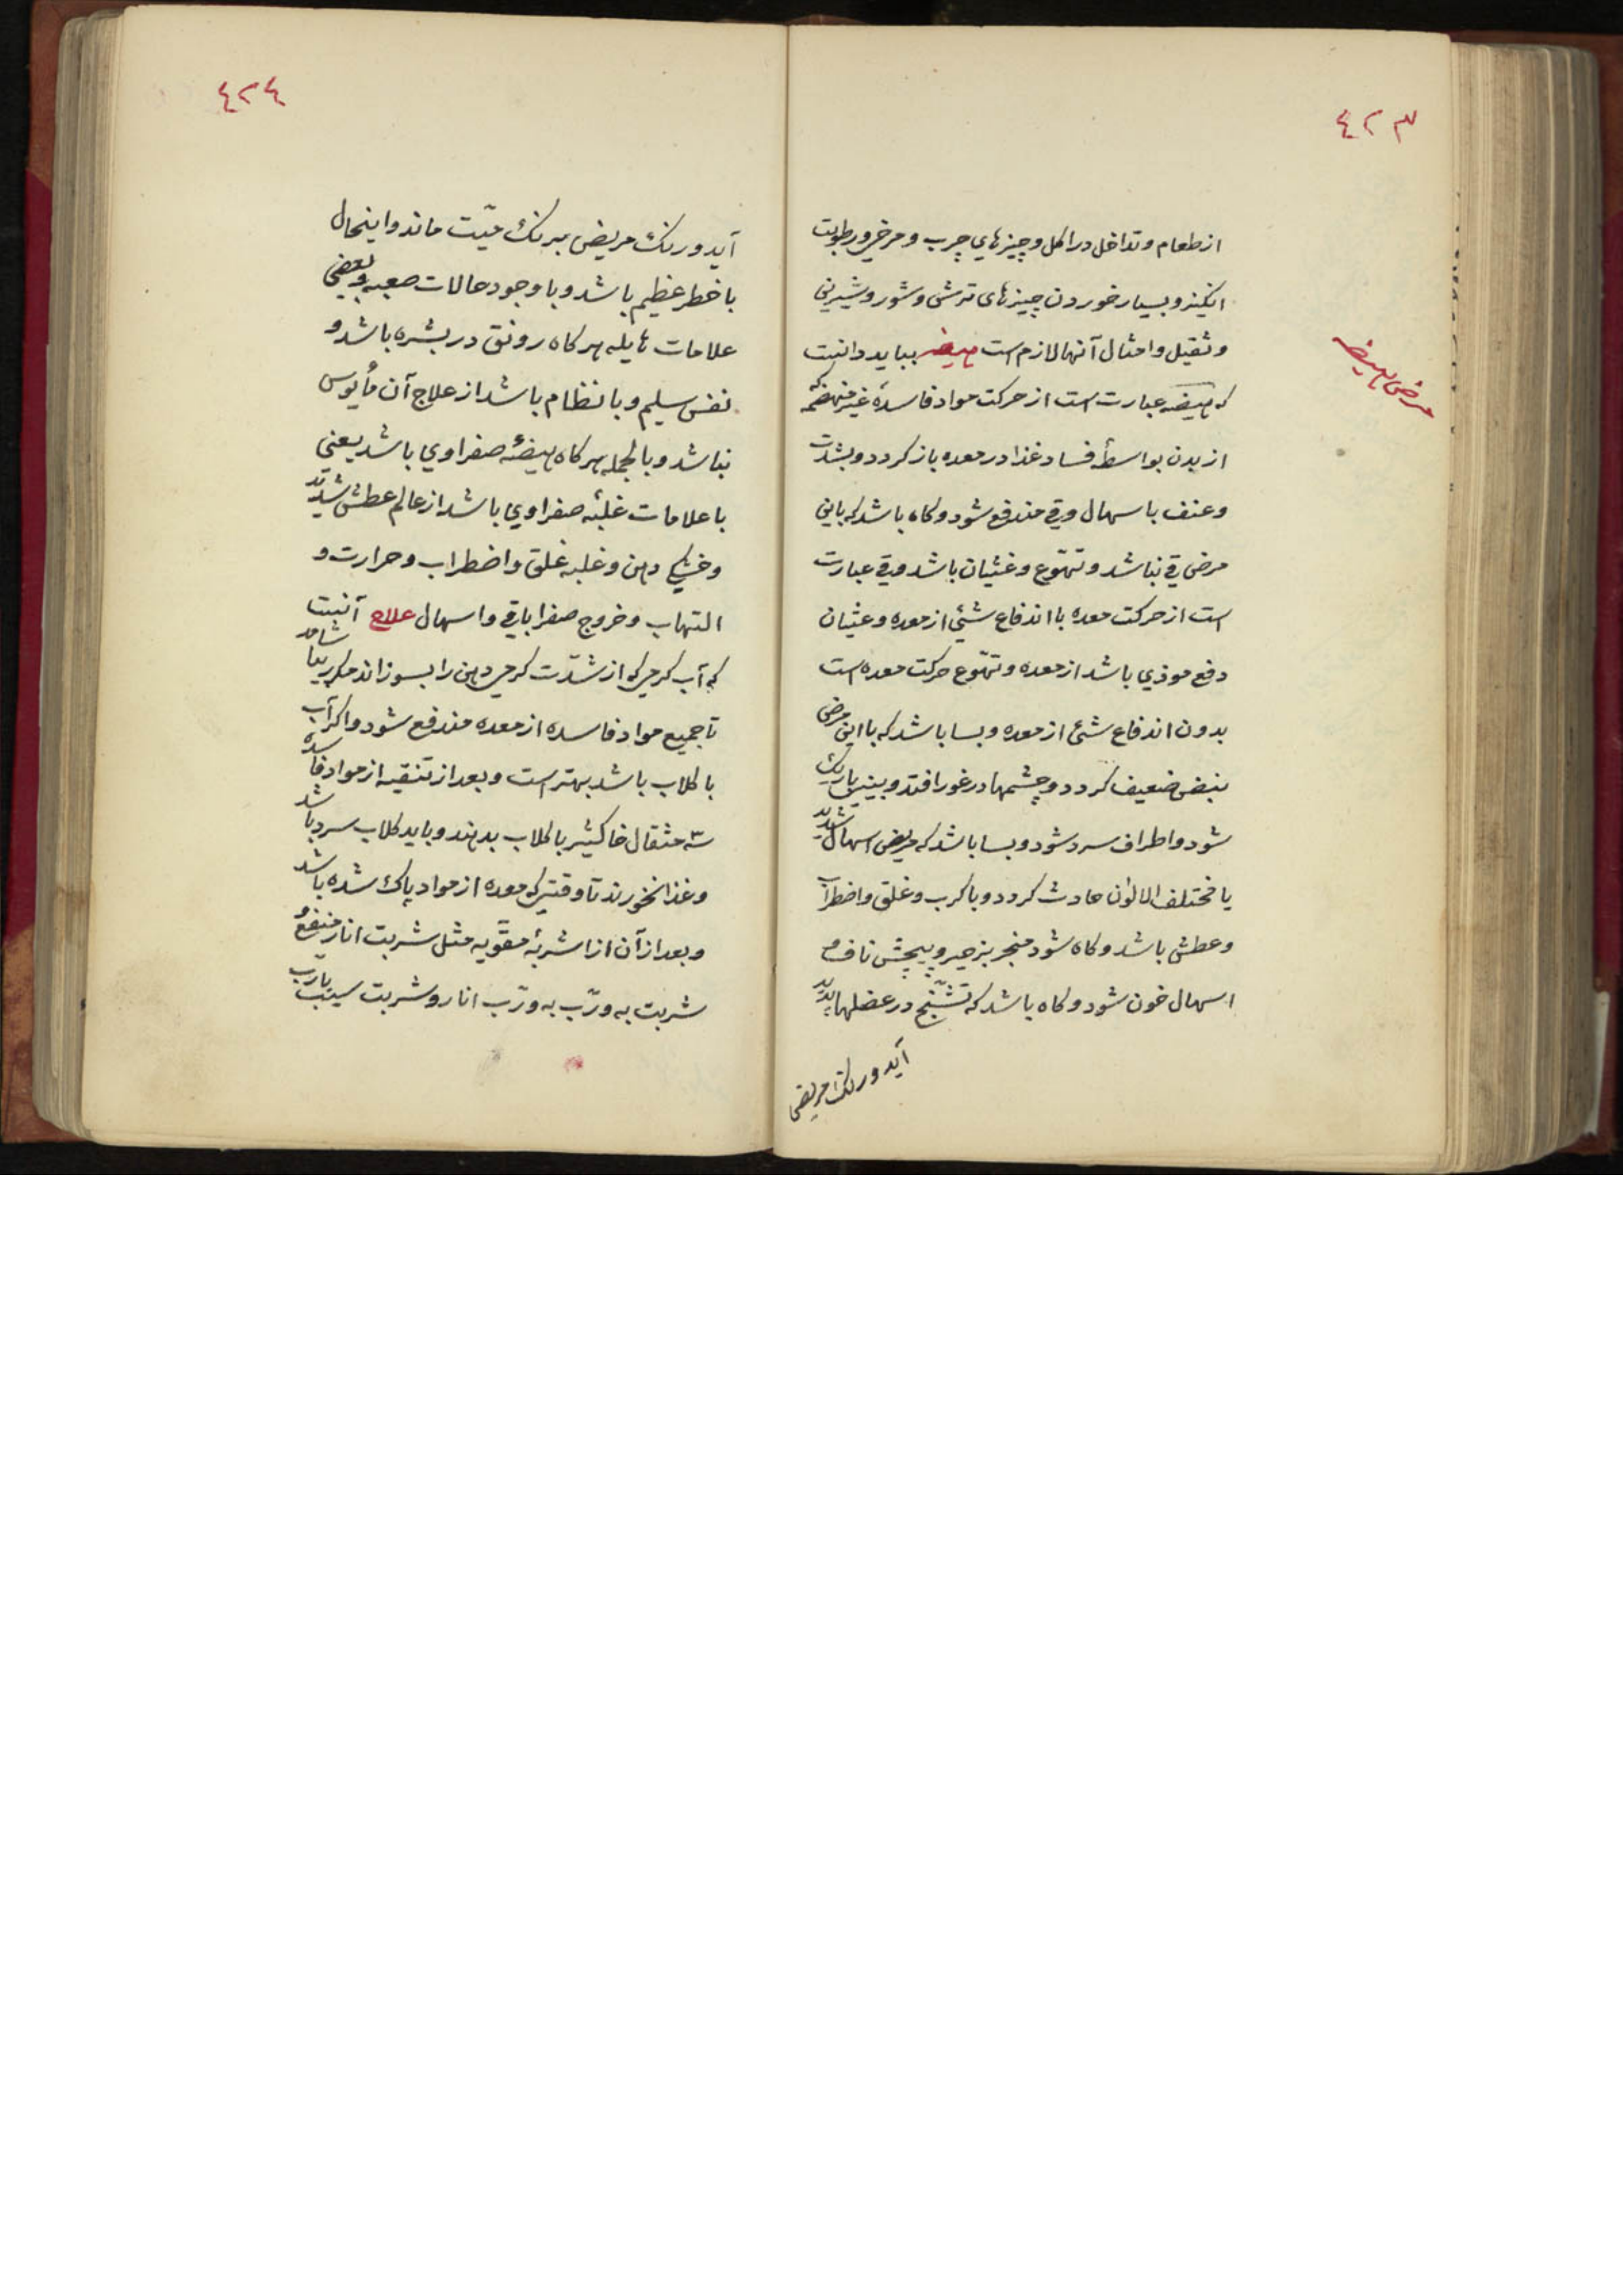 ٤٢٣
از طعام و تداخل در اکل و چیزهاي چرب و مرخي و رطوبت
انکیز و بسیار خوردن چیزهای ترشی و شور و شیرینی
و ثقیل و امثال آنها لازم است هیضه بباید دانست
که هیضه عبارت است از حرکت مواد فاسدهٔ غیر منهضمه
مرض هیضه
از بدن بواسطهٔ فساد غذا در معده باز کردد و بشدت
و عنف باسهال وقي مندفع شود و کاه باشد که باین
مرض قي نباشد و تهوّع و غثیان باشد وقي عبارت
است از حرکت معده با اندفاع شئي از معده و غثیان
دفع موذي باشد از معده و تهوّع حرکت معده است
بدون اندفاع شئ از معده و بسا باشد که با این مرض
نبض ضعیف کردد و چشمها در غور افتد و بیني باریک
شود و اطراف سرد شود و بسا باشد که مریض اسهال شدید
یا مختلف الالوان حادث کردد و با کرب و غلق و اضطراب
و عطش باشد و کاه شود منجر بزحیر و پیچش ناف و
اسهال خون شود و کاه باشد که تشنّج در عضلها پدید
آید و رنک مریض
٤٢٤
آید و رنک مریض برنک میّت ماند و اینحال
با خطر عظیم باشد و با وجود حالات صعبه و بعضی
علامات هایله هر کاه رونق در بشره باشد و
نفس سلیم و بانظام باشد از علاج آن مأیوس
نباشد و بالجمله هر کاه هیضهٔ صفراوي باشد یعني
با علامات غلبهٔ صفراوي باشد از عالم عطش شدید
و خشکي دهن و غلبه غلق و اضطراب و حرارت و
التهاب و خروج صفرا باقي و اسهال علاج آنست
که آب کرمي که از شدّت کرمي دهن را بسوزاند مکرر بیاشامد
تا جمیع مواد فاسده از معده مندفع شود و اکر آب
با کلاب باشد بهتر است و بعد از تنقیه از مواد فاسده
سه مثقال خاکشیر با کلاب بدهند و باید کلاب سرد باشد
و غذا نخورند تا وقتیکه معده از مواد پاک شده باشد
و بعد از آن از اشربهٔ مقوّیه مثل شربت انار منعنع و
شربت به و رّب به و رّب انار و شربت سیب یا رّب